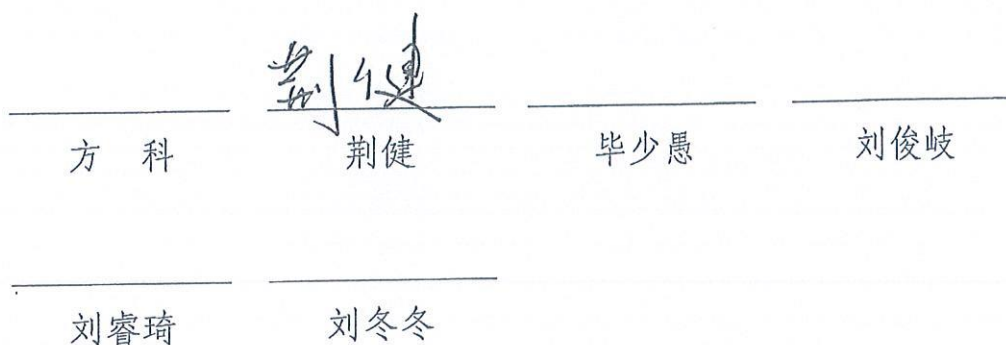 荆健
方 科 荆健 毕少愚 刘俊岐
刘睿琦 刘冬冬